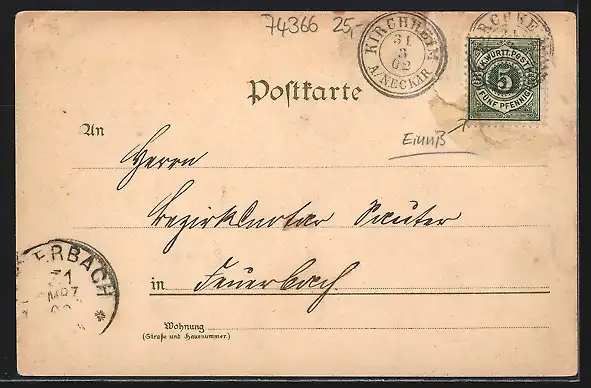 74366 25,-
KIRCHHEIM
31
3
02
A/NECKAR
K. WÜRTT. POST
5
FÜNF PFENNIG
Postkarte
Einriß
An
Herrn
Bezirksnotar Sauter
in Feuerbach.
ERBACH
31
MRZ
Wohnung
(Straße und Hausnummer.)